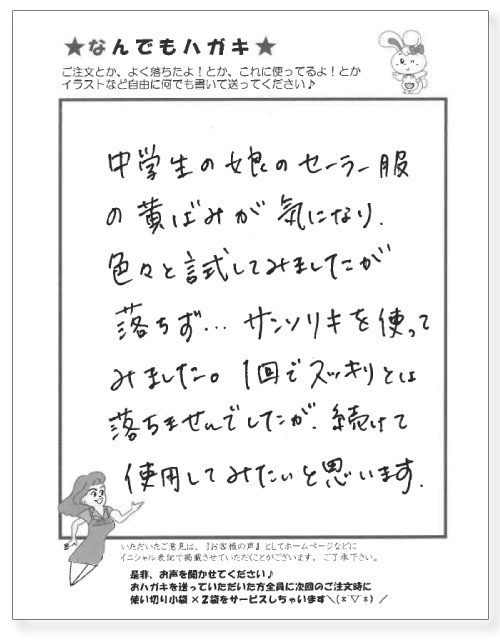 ★なんでもハガキ★
ご注文とか、よく落ちたよ！とか、これに使ってるよ！とか
イラストなど自由に何でも書いて送ってください♪
中学生の娘のセーラー服
の黄ばみが気になり、
色々と試してみましたが
落ちず… サンソリキを使って
みました。1回でスッキリとは
落ちませんでしたが、続けて
使用してみたいと思います。
いただいたご意見は、『お客様の声』としてホームページなどに
イニシャル表記で掲載させていただくことがございます。ご了承下さい。
是非、お声を聞かせてください♪
おハガキを送っていただいた方全員に次回のご注文時に
使い切り小袋×2袋をサービスしちゃいます＼(*´▽`*)／